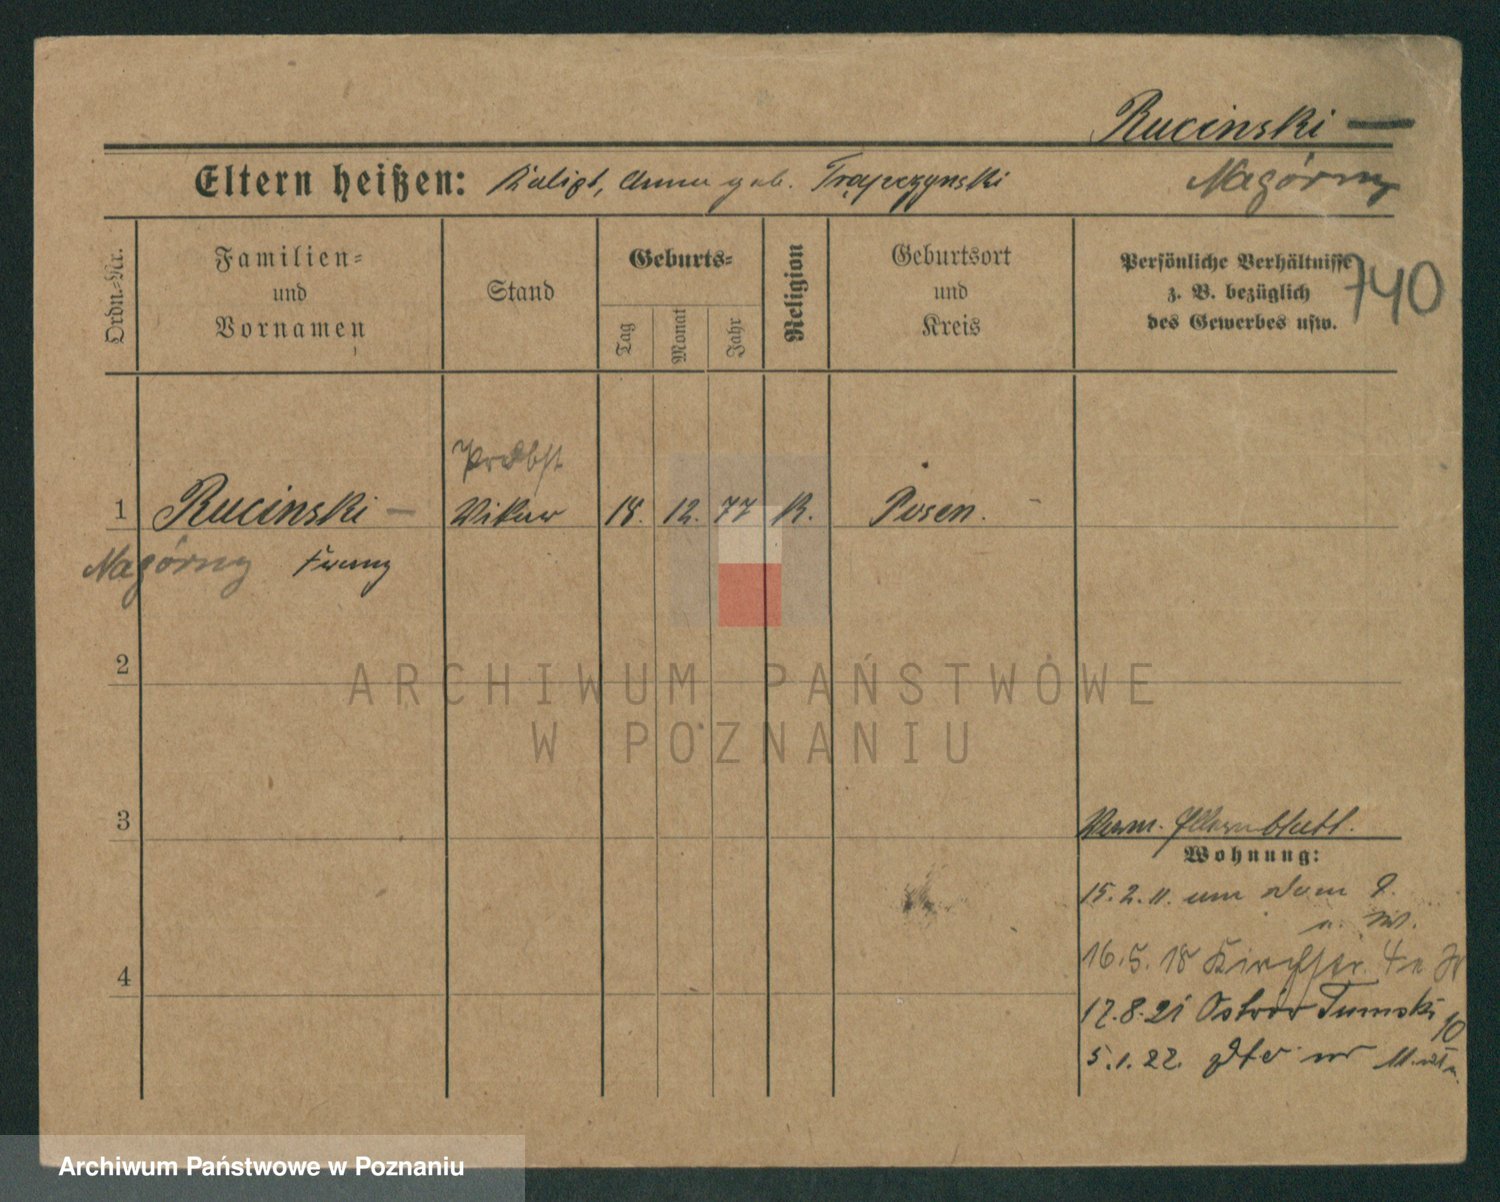 Rucinski —
Eltern heißen: Kalixt, Anna geb. Trąpczynski
Nagórny
740
Ordn.-Nr.
Familien-
und
Vornamen
Stand
Geburts-
Tag
Monat
Jahr
Religion
Geburtsort
und
Kreis
Persönliche Verhältnisse
z. B. bezüglich
des Gewerbes usw.
Probst
1 Rucinski — Vikar 18. 12. 77 K. Posen.
Nagórny Franz
2
ARCHIWUM PAŃSTWOWE
W POZNANIU
3
Verm. Elternblatt.
Wohnung:
15.2.11. um Dom 9.
16.5.18 Kirchstr. 4
17.8.21 Ostrów Tumski 10
4
5.1.22. dto nr 11.
Archiwum Państwowe w Poznaniu